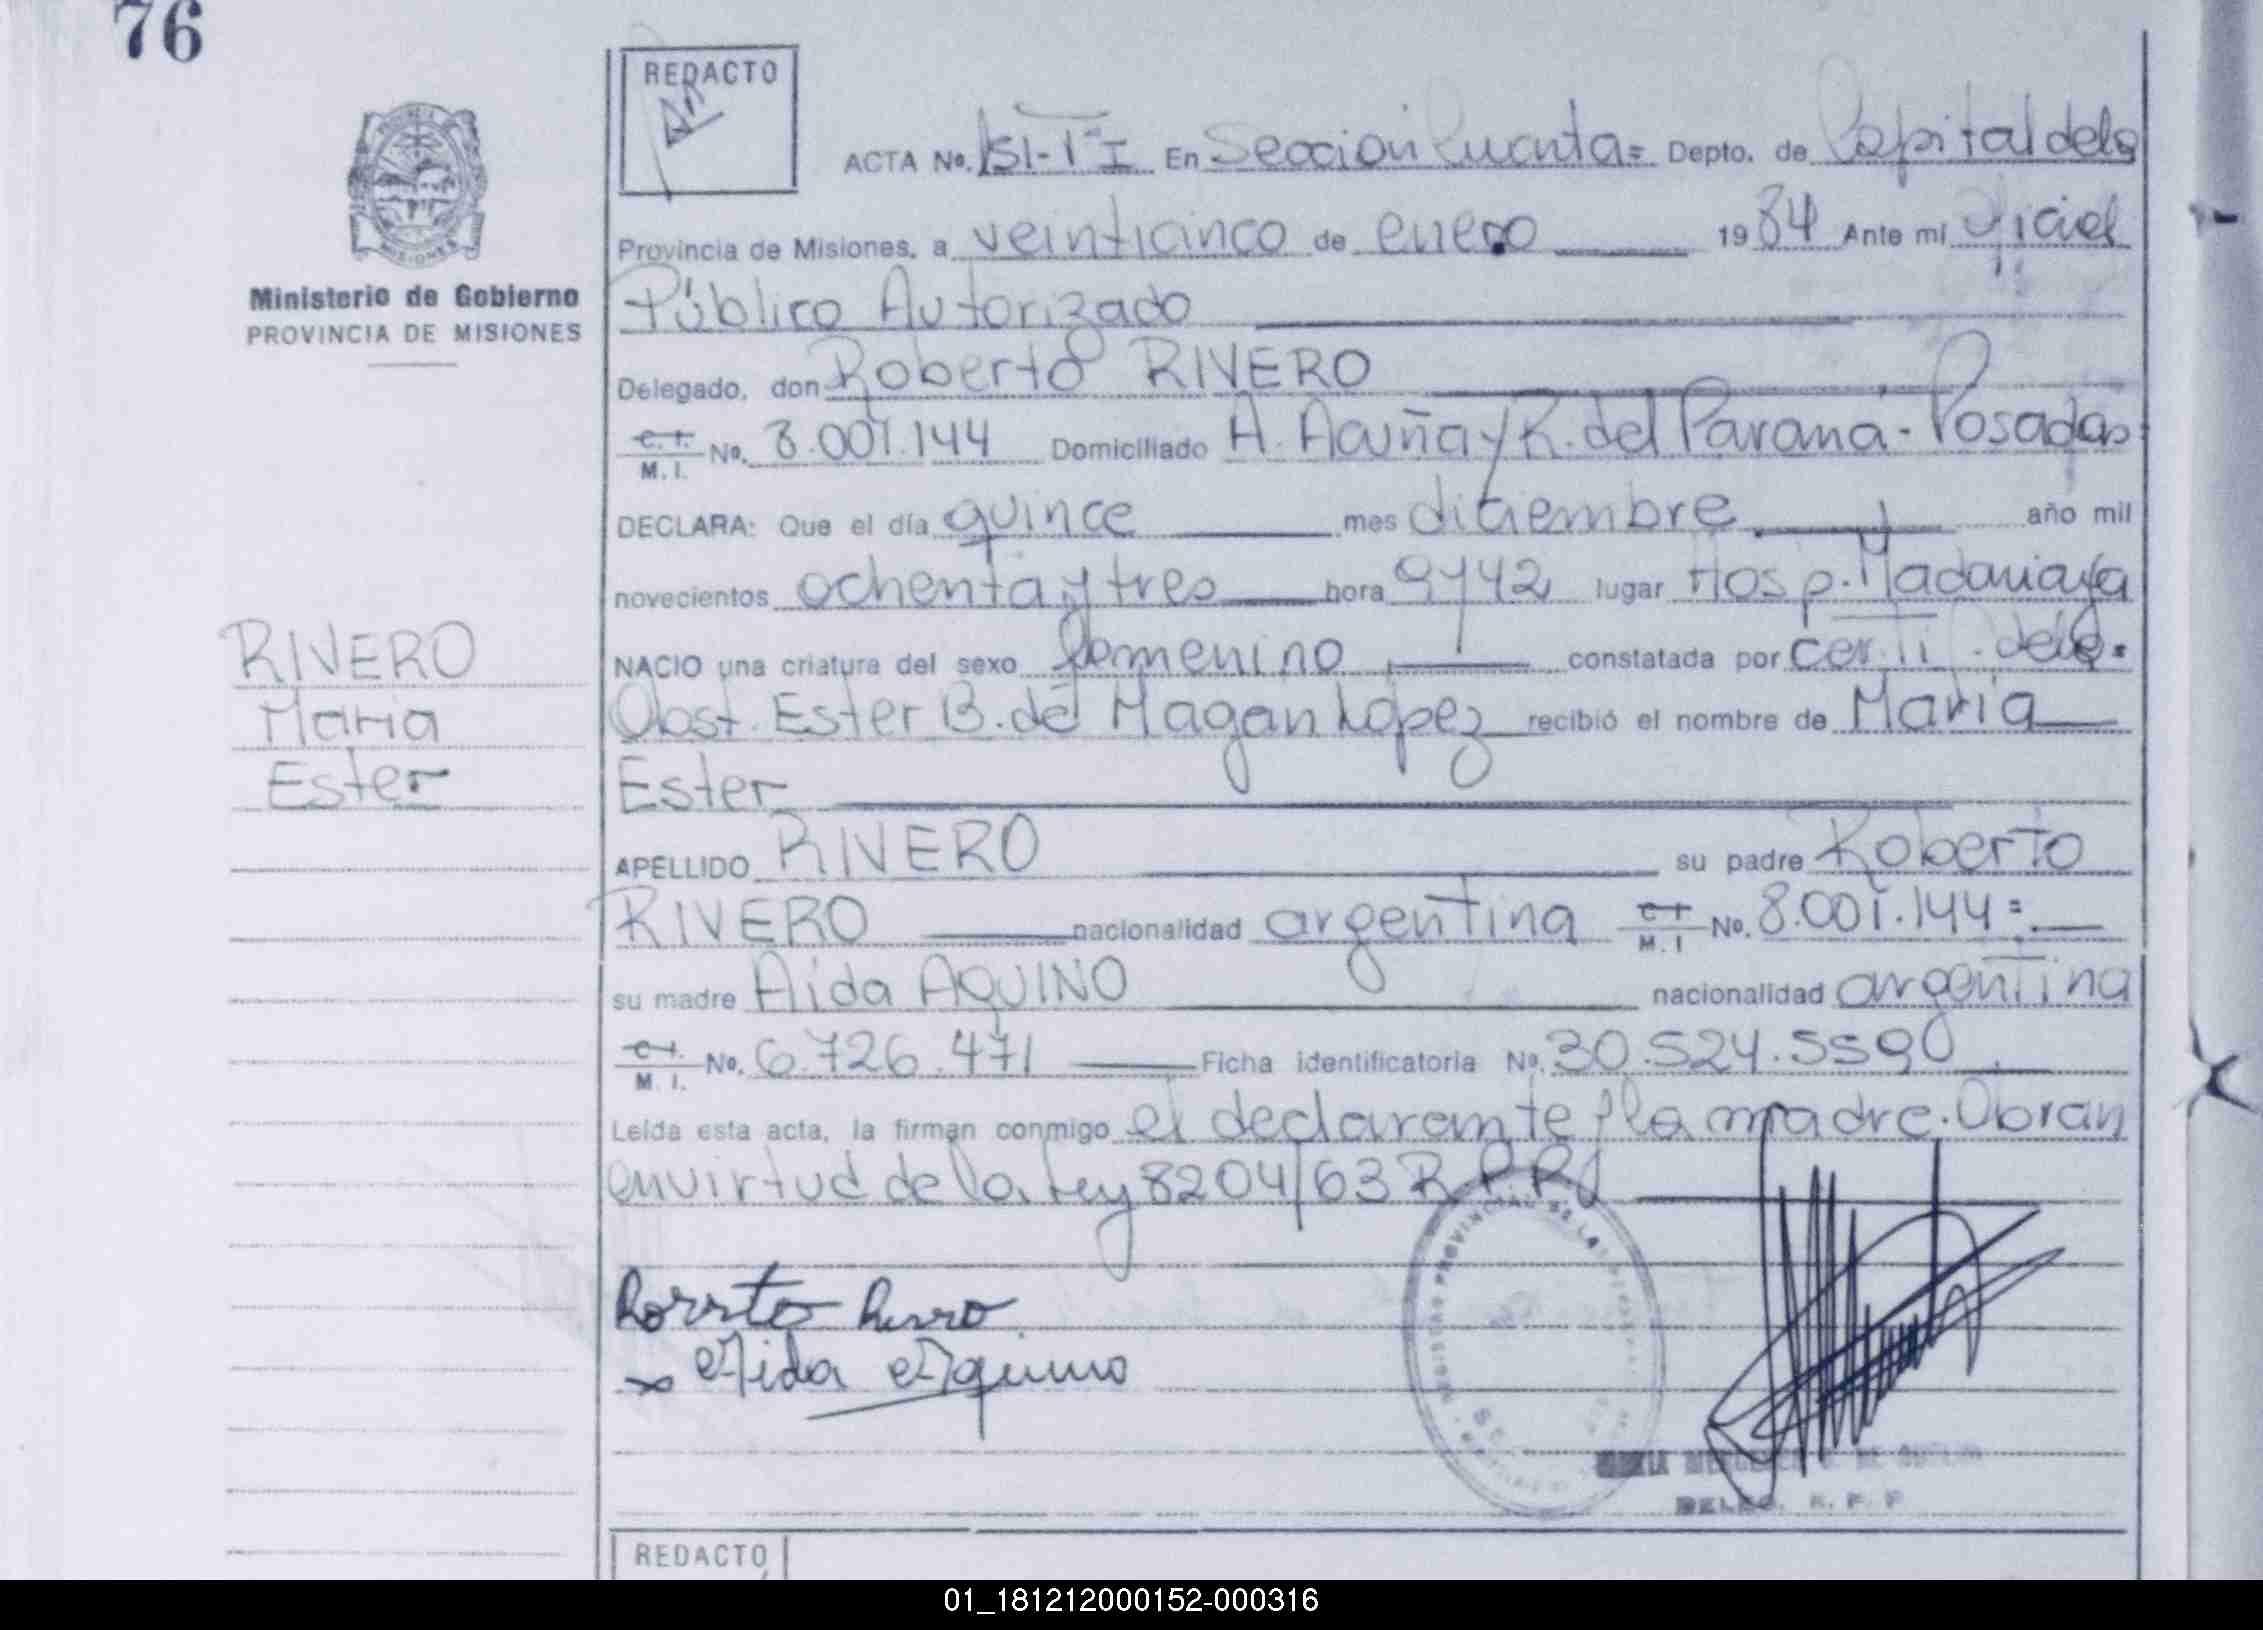 76
REDACTO
ACTA No. 151-TºI En Sección Cuarta= Depto. de Capital de la
Provincia de Misiones, a veinticinco de enero 1984 Ante mí Oficial
Público Autorizado
Ministerio de Gobierno
PROVINCIA DE MISIONES
Delegado, don Roberto RIVERO
C. I. M. I. No. 8.001.144 Domiciliado A. Acuña y R. del Paraná - Posadas
DECLARA: Que el día quince mes diciembre año mil
novecientos ochenta y tres hora 9y42 lugar Hosp. Madariaga
NACIO una criatura del sexo femenino constatada por certif. de la
Obst. Ester B. de Magan López recibió el nombre de María
Ester
RIVERO
María
Ester
APELLIDO RIVERO su padre Roberto
RIVERO nacionalidad argentina C I M. I No. 8.001.144=
su madre Aida AQUINO nacionalidad argentina
C I. M. I. No. 6.726.471 Ficha identificatoria No. 30.524.5590
Leída esta acta, la firman conmigo el declarante y la madre. Obran
en virtud de la Ley 8204/63 R.P.P.
Roberto Rivero
Aida Aquino
REGISTRO PROVINCIAL DE LAS PERSONAS
DELEG. R. P. P
REDACTO
01_181212000152-000316